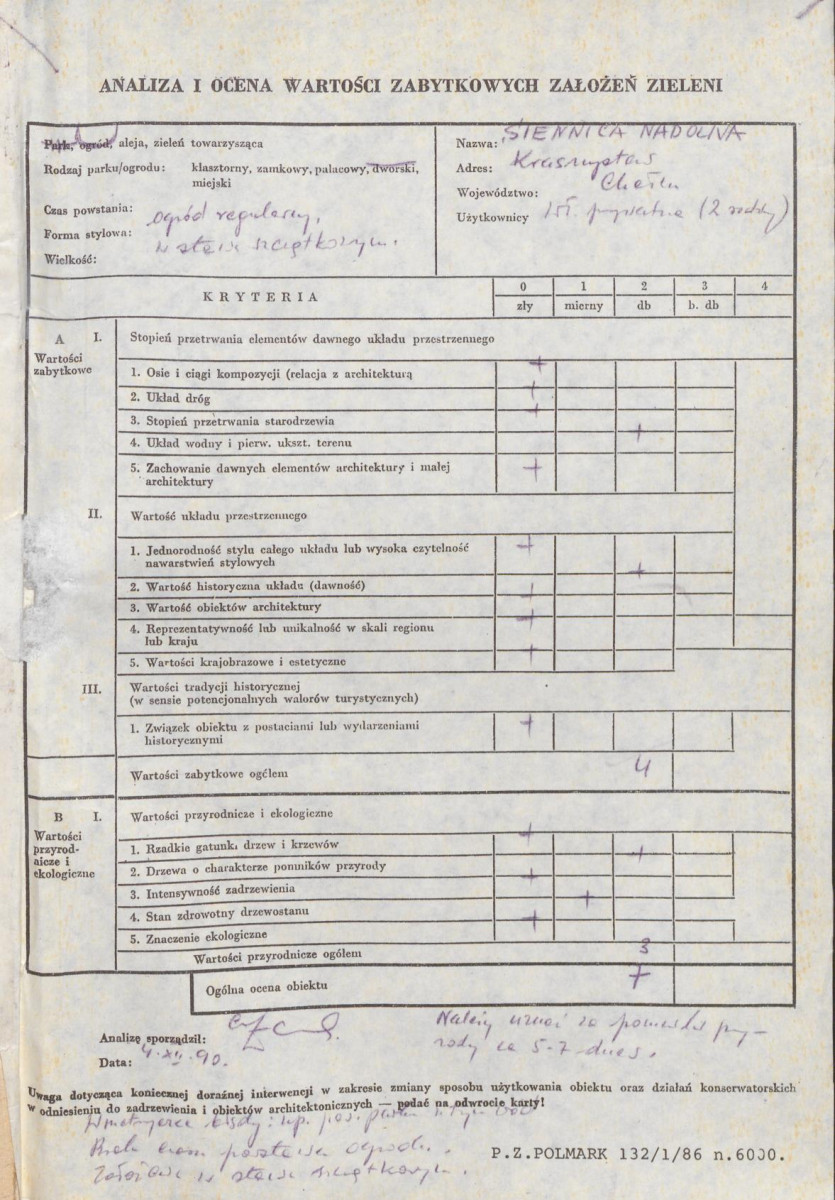 ANALIZA I OCENA WARTOŚCI ZABYTKOWYCH ZAŁOŻEŃ ZIELENI
Park, ogród, aleja, zieleń towarzysząca
Rodzaj parku/ogrodu: klasztorny, zamkowy, pałacowy, dworski, miejski
Czas powstania:
Forma stylowa: ogród regularny, w stanie szczątkowym.
Wielkość:
Nazwa: SIENNICA NADOLNA
Adres: Krasnystaw
Województwo: Chełm
Użytkownicy wł. prywatna (2 rodziny)
KRYTERIA
0 1 2 3 4
zły mierny db b. db
A I. Stopień przetrwania elementów dawnego układu przestrzennego
Wartości zabytkowe
1. Osie i ciągi kompozycji (relacja z architekturą +
2. Układ dróg +
3. Stopień przetrwania starodrzewia +
4. Układ wodny i pierw. ukszt. terenu +
5. Zachowanie dawnych elementów architektury i małej architektury +
II. Wartość układu przestrzennego
1. Jednorodność stylu całego układu lub wysoka czytelność nawarstwień stylowych +
2. Wartość historyczna układu (dawność) +
3. Wartość obiektów architektury +
4. Reprezentatywność lub unikalność w skali regionu lub kraju +
5. Wartości krajobrazowe i estetyczne +
III. Wartości tradycji historycznej
(w sensie potencjonalnych walorów turystycznych)
1. Związek obiektu z postaciami lub wydarzeniami historycznymi +
Wartości zabytkowe ogółem 4
B I. Wartości przyrodnicze i ekologiczne
Wartości przyrodnicze i ekologiczne
1. Rzadkie gatunki drzew i krzewów +
2. Drzewa o charakterze pomników przyrody +
3. Intensywność zadrzewienia +
4. Stan zdrowotny drzewostanu +
5. Znaczenie ekologiczne +
Wartości przyrodnicze ogółem 3
Ogólna ocena obiektu 7
Analizę sporządził:
Data: 4.XII.90.
Należy uznać za pomniki przy-
rody 5-7 drzew.
Uwaga dotycząca koniecznej doraźnej interwencji w zakresie zmiany sposobu użytkowania obiektu oraz działań konserwatorskich
w odniesieniu do zadrzewienia i obiektów architektonicznych — podać na odwrocie karty!
Brak ogrodu.
w stanie szczątkowym.
P.Z.POLMARK 132/1/86 n.6000.